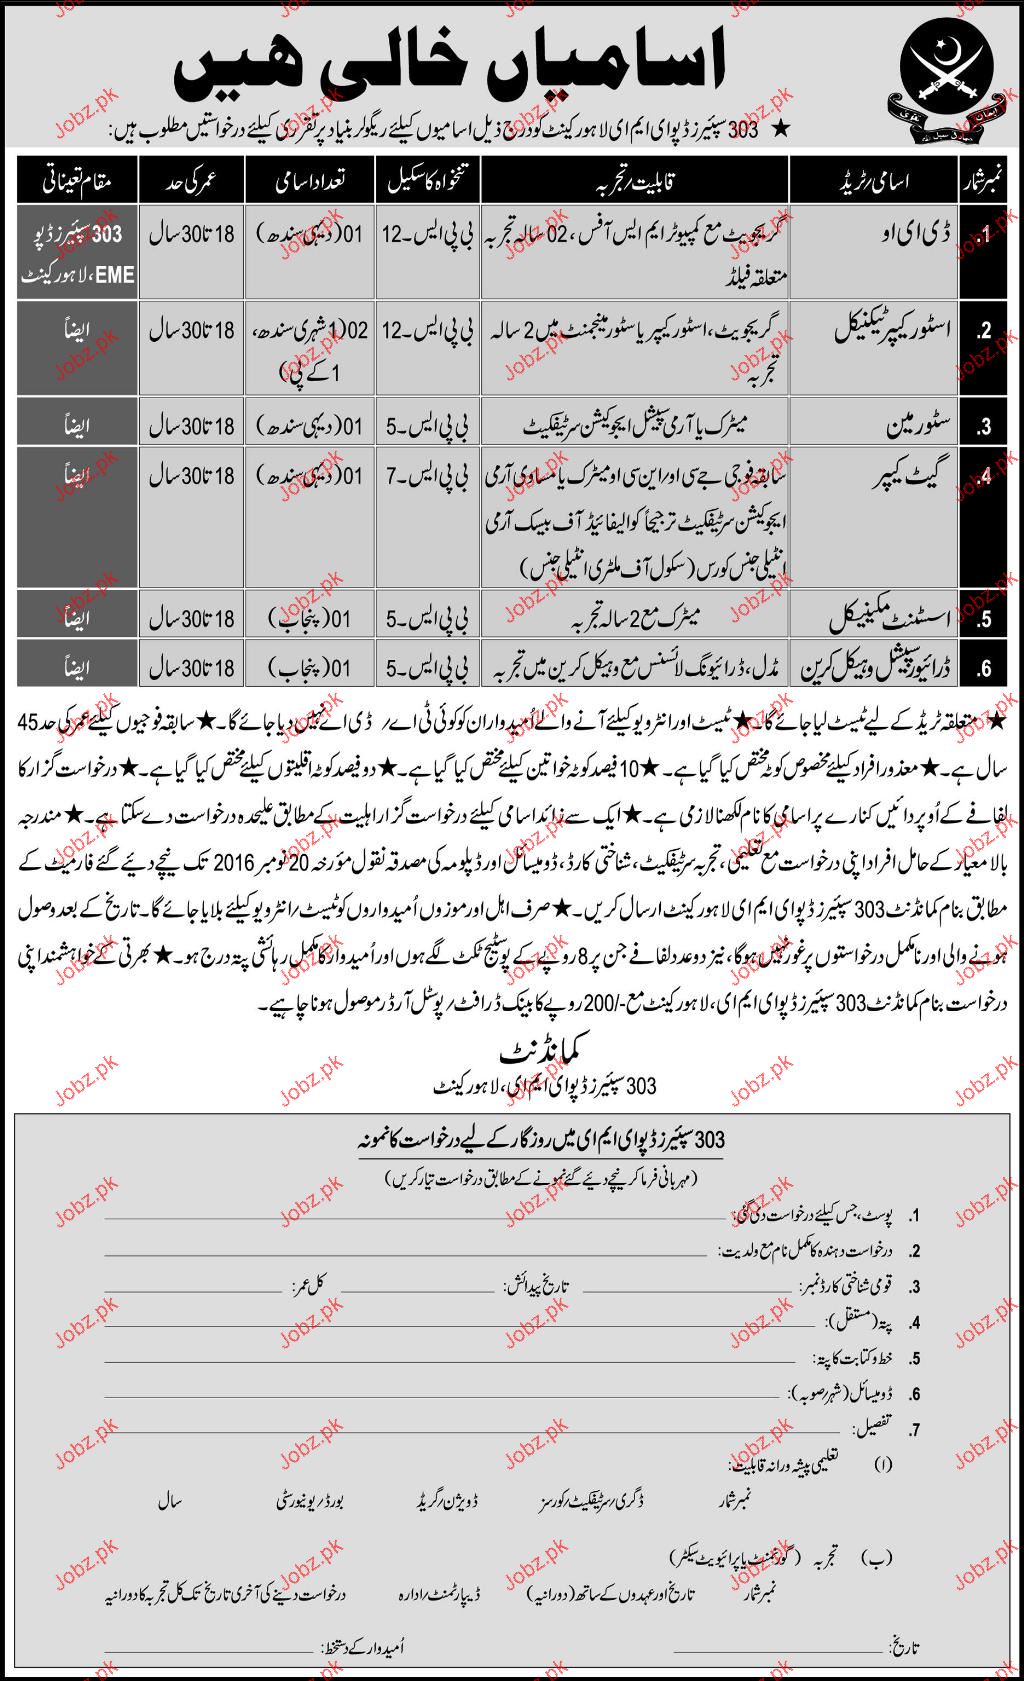 اسامیاں خالی ہیں
★ 303 سپئیرز ڈپو ای ایم ای لاہور کینٹ کو درج ذیل اسامیوں کیلئے ریگولر بنیاد پر تقرری کیلئے درخواستیں مطلوب ہیں:
نمبر شمار اسامی/ٹریڈ قابلیت/تجربہ تنخواہ کا سکیل تعداد اسامی عمر کی حد مقام تعیناتی
1. ڈی ای او گریجویٹ مع کمپیوٹر ایم ایس آفس، 02 سالہ تجربہ بی پی ایس۔12 01 (دیہی سندھ) 18 تا 30 سال 303 سپئیرز ڈپو
متعلقہ فیلڈ EME، لاہور کینٹ
2. اسٹور کیپر ٹیکنیکل گریجویٹ، اسٹور کیپر یا سٹور مینجمنٹ میں 2 سالہ بی پی ایس۔12 02 (1 شہری سندھ، 18 تا 30 سال ایضاً
تجربہ 1 کے پی)
3. سٹور مین میٹرک یا آرمی سپیشل ایجوکیشن سرٹیفکیٹ بی پی ایس۔5 01 (دیہی سندھ) 18 تا 30 سال ایضاً
4. گیٹ کیپر سابقہ فوجی جے سی او/این سی او میٹرک یا مساوی آرمی بی پی ایس۔7 01 (دیہی سندھ) 18 تا 30 سال ایضاً
ایجوکیشن سرٹیفکیٹ ترجیحاً کوالیفائیڈ آف بیسک آرمی
انٹیلی جنس کورس (سکول آف ملٹری انٹیلی جنس)
5. اسسٹنٹ مکینیکل میٹرک مع 2 سالہ تجربہ بی پی ایس۔5 01 (پنجاب) 18 تا 30 سال ایضاً
6. ڈرائیور سپیشل وہیکل کرین مڈل، ڈرائیونگ لائسنس مع وہیکل کرین میں تجربہ بی پی ایس۔5 01 (پنجاب) 18 تا 30 سال ایضاً
★ متعلقہ ٹریڈ کے لیے ٹیسٹ لیا جائے گا۔ ★ ٹیسٹ اور انٹرویو کیلئے آنے والے اُمیدواران کو کوئی ٹی اے/ ڈی اے نہیں دیا جائے گا۔ ★ سابقہ فوجیوں کیلئے عمر کی حد 45
سال ہے۔ ★ معذور افراد کیلئے مخصوص کوٹہ مختص کیا گیا ہے۔ ★ 10 فیصد کوٹہ خواتین کیلئے مختص کیا گیا ہے۔ ★ دو فیصد کوٹہ اقلیتوں کیلئے مختص کیا گیا ہے۔ ★ درخواست گزار کا
لفافے کے اُوپر دائیں کنارے پر اسامی کا نام لکھنا لازمی ہے۔ ★ ایک سے زائد اسامی کیلئے درخواست گزار اہلیت کے مطابق علیحدہ درخواست دے سکتا ہے۔ ★ مندرجہ
بالا معیار کے حامل افراد اپنی درخواست مع تعلیمی، تجربہ سرٹیفکیٹ، شناختی کارڈ، ڈومیسائل اور ڈپلومہ کی مصدقہ نقول مؤرخہ 20 نومبر 2016 تک نیچے دیئے گئے فارمیٹ کے
مطابق بنام کمانڈنٹ 303 سپئیرز ڈپو ای ایم ای لاہور کینٹ ارسال کریں۔ ★ صرف اہل اور موزوں اُمیدواروں کو ٹیسٹ/انٹرویو کیلئے بلایا جائے گا۔ تاریخ کے بعد وصول
ہونے والی اور نامکمل درخواستوں پر غور نہیں ہوگا، نیز دو عدد لفافے جن پر 8 روپے کے پوسٹیج ٹکٹ لگے ہوں اور اُمیدوار کا مکمل رہائشی پتہ درج ہو۔ ★ بھرتی کے خواہشمند اپنی
درخواست بنام کمانڈنٹ 303 سپئیرز ڈپو ای ایم ای، لاہور کینٹ مع -/200 روپے کا بینک ڈرافٹ/پوسٹل آرڈر موصول ہونا چاہیے۔
کمانڈنٹ
303 سپئیرز ڈپو ای ایم ای، لاہور کینٹ
303 سپئیرز ڈپو ای ایم ای میں روزگار کے لیے درخواست کا نمونہ
(مہربانی فرما کر نیچے دیئے گئے نمونے کے مطابق درخواست تیار کریں)
1. پوسٹ، جس کیلئے درخواست دی گئی:
2. درخواست دہندہ کا مکمل نام مع ولدیت:
3. قومی شناختی کارڈ نمبر: تاریخ پیدائش: کل عمر:
4. پتہ (مستقل):
5. خط و کتابت کا پتہ:
6. ڈومیسائل (شہر/صوبہ):
7. تفصیل:
(ا) تعلیمی پیشہ ورانہ قابلیت:
نمبر شمار ڈگری/سرٹیفکیٹ/کورسز ڈویژن/گریڈ بورڈ/یونیورسٹی سال
(ب) تجربہ (گورنمنٹ یا پرائیویٹ سیکٹر)
نمبر شمار تاریخ اور عہدوں کے ساتھ (دورانیہ) ڈیپارٹمنٹ/ادارہ درخواست دینے کی آخری تاریخ تک کل تجربہ کا دورانیہ
تاریخ: اُمیدوار کے دستخط:
Jobz.pk